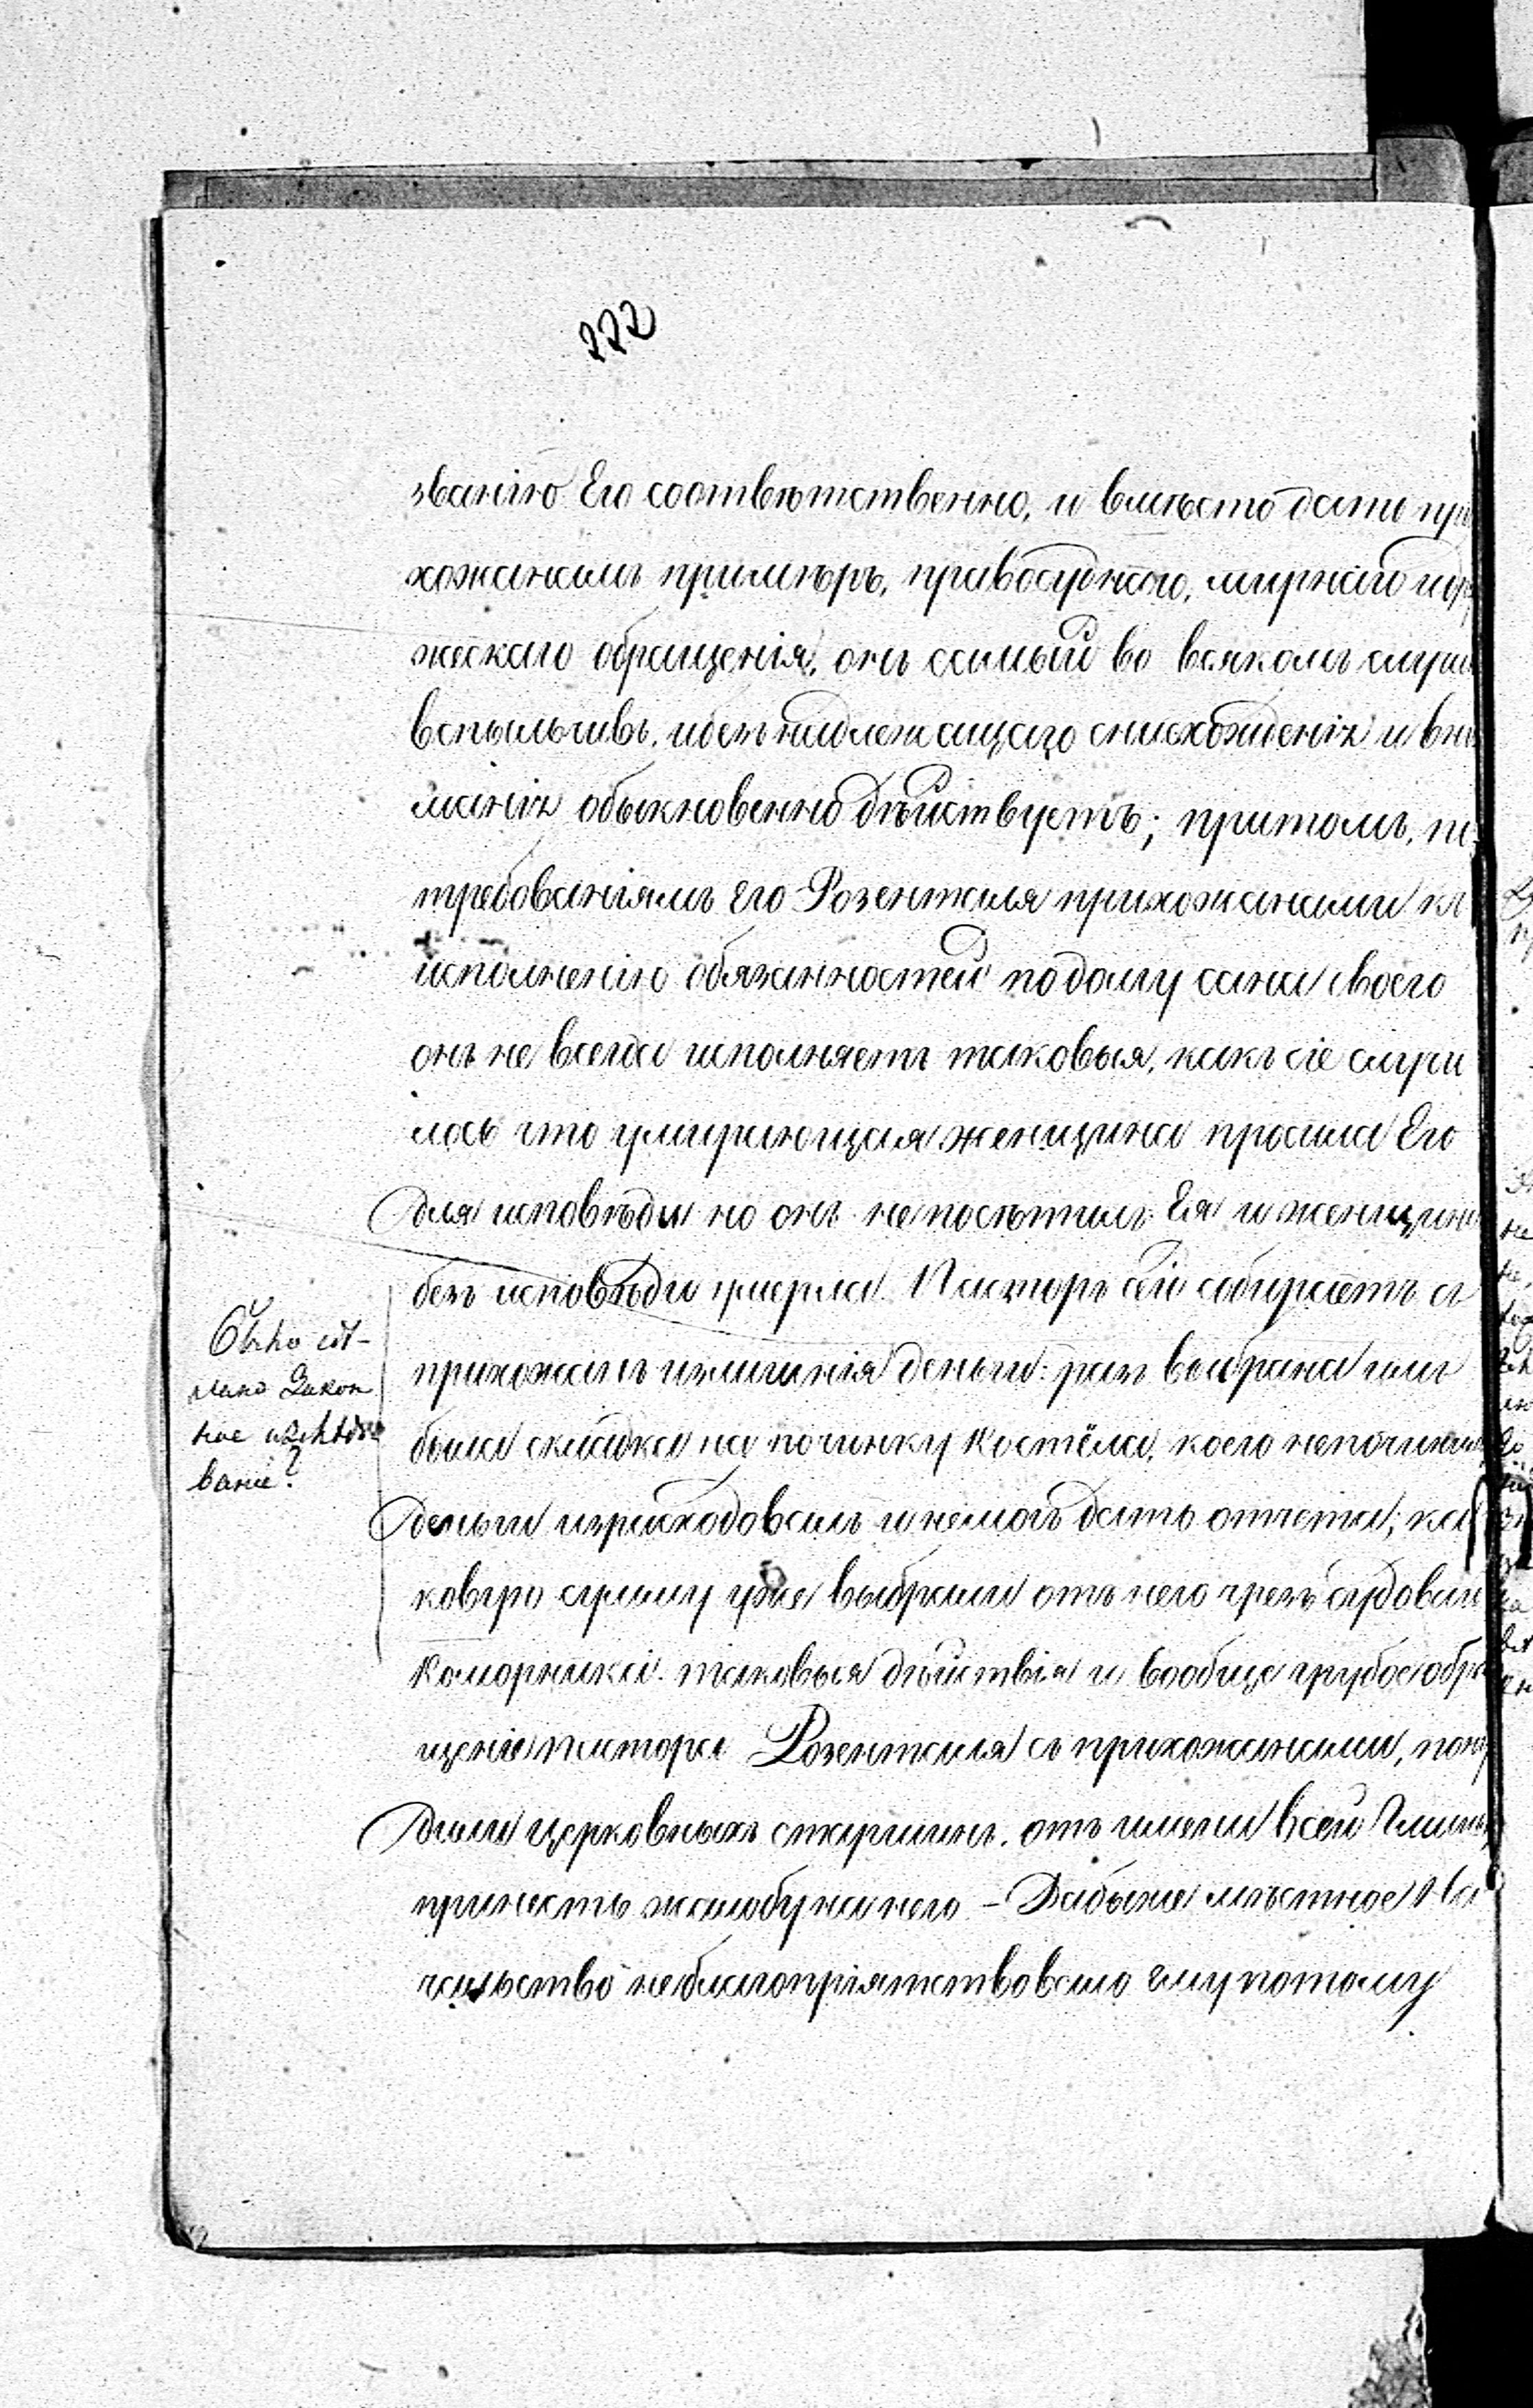 222
званію Его соотвѣтственно, и вмѣсто дать при
хожанамъ примѣръ, правосуднаго, мирнаго и дру
жескаго обращенія, онъ самый во всякомъ случаѣ
вспыльчивъ, и безъ надлежащаго снисхожденія и вни
манія обыкновенно дѣйствуетъ; притомъ, по
требованіямъ его Розенталя прихожанами къ
исполненію обязанностей по долгу сана своего
онъ не всегда исполняетъ таковыя, какъ сіе случи
лось что умирающая женщина просила Его
для исповѣди но онъ не посѣтилъ Ея и женщина
безъ исповѣди умерла. Пасторъ сей собираетъ съ
прихожанъ излишнія деньги: разъ выбрана имъ
была складка на починку Костёла, коего непочинилъ
деньги израсходовалъ и немогъ дать отчета; ка
ковую сумму уже выбрали отъ него чрезъ судоваго
Коморника. таковыя дѣйствія и вообще грубое обра
щеніе пастора Розенталя съ прихожанами, пону
дили церковныхъ старшинъ, отъ имени всей Гмины
принесть жалобу на него – Дабыже мѣстное На
чальство неблагопріятствовало ему потому
Было сдѣ-
лано Закон
ное изслѣдо
ваніе?